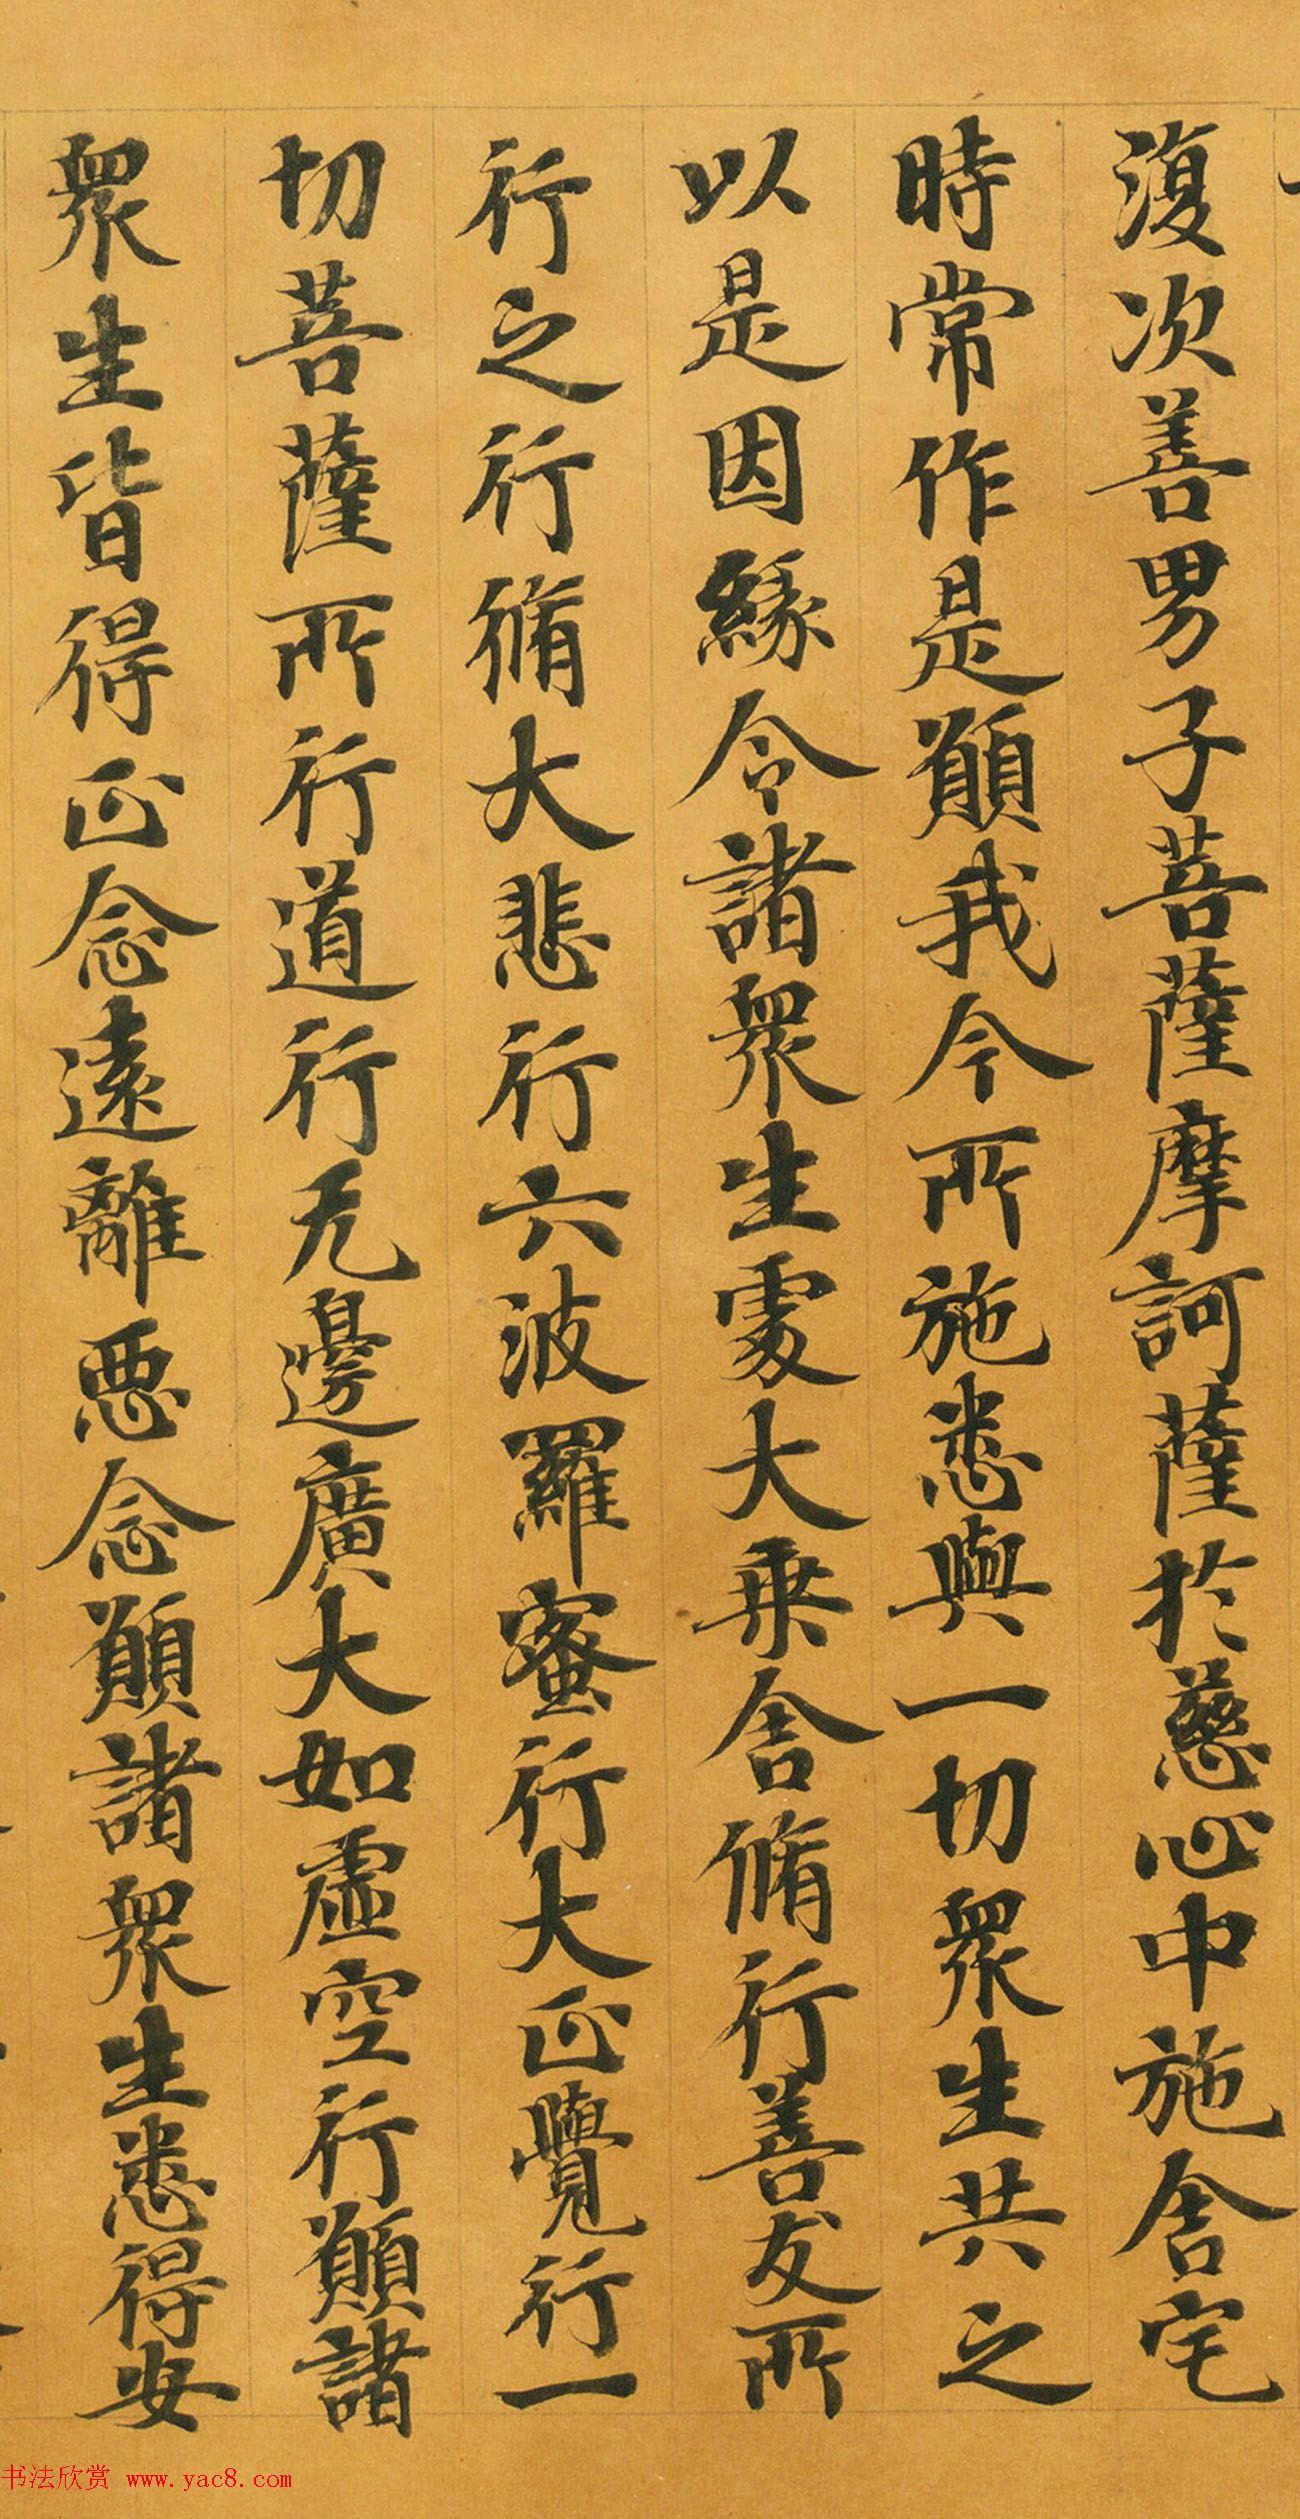 復次善男子菩薩摩訶薩於慈心中施舍宅
時常作是願我今所施悉與一切眾生共之
以是因緣令諸眾生處大乘舍脩行善友所
行之行脩大悲行六波羅蜜行大正覺行一
切菩薩所行道行无邊廣大如虛空行願諸
眾生皆得正念遠離惡念願諸眾生悉得安
书法欣赏 www.yac8.com